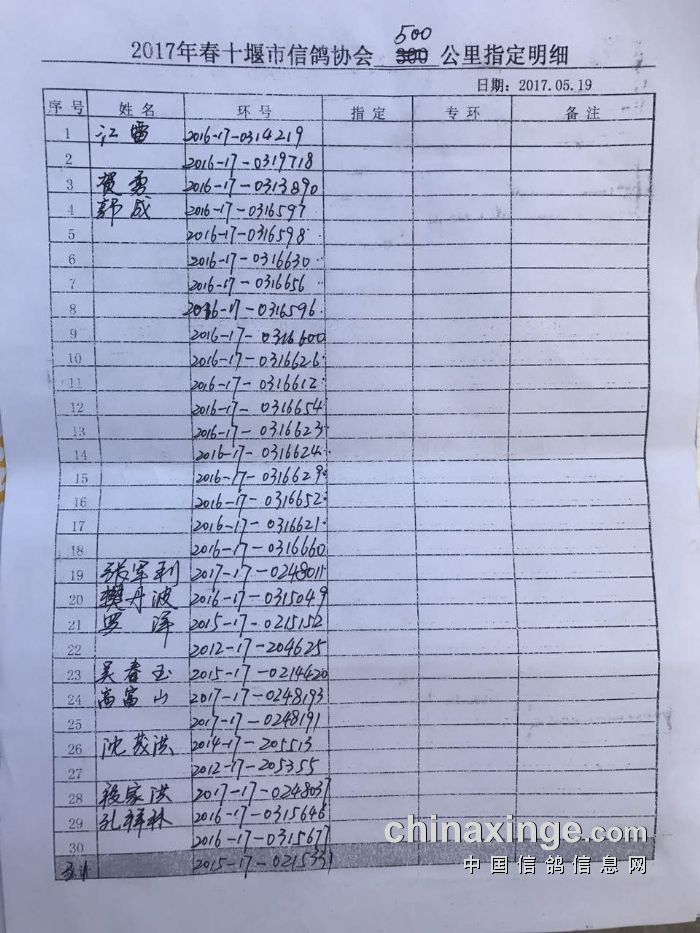 500
2017年春十堰市信鸽协会 300 公里指定明细
日期: 2017.05.19
序号 姓名 环号 指定 专环 备注
1 江雷 2016-17-0314219
2 2016-17-0319718
3 贺勇 2016-17-0313890
4 郭成 2016-17-0316597
5 2016-17-0316598
6 2016-17-0316630
7 2016-17-0316656
8 2016-17-0316596
9 2016-17-0316600
10 2016-17-0316626
11 2016-17-0316612
12 2016-17-0316654
13 2016-17-0316623
14 2016-17-0316624
15 2016-17-0316629
16 2016-17-0316652
17 2016-17-0316621
18 2016-17-0316660
19 张军利 2017-17-0248011
20 樊丹波 2016-17-0315049
21 罗洋 2015-17-0215152
22 2012-17-204625
23 吴春玉 2015-17-0214420
24 高富山 2017-17-0248193
25 2017-17-0248191
26 沈茂洪 2014-17-205513
27 2012-17-205355
28 程家洪 2017-17-0248037
29 孔祥林 2016-17-0315646
30 2016-17-0315677
2015-17-0215331
chinaxinge.com
中国信鸽信息网